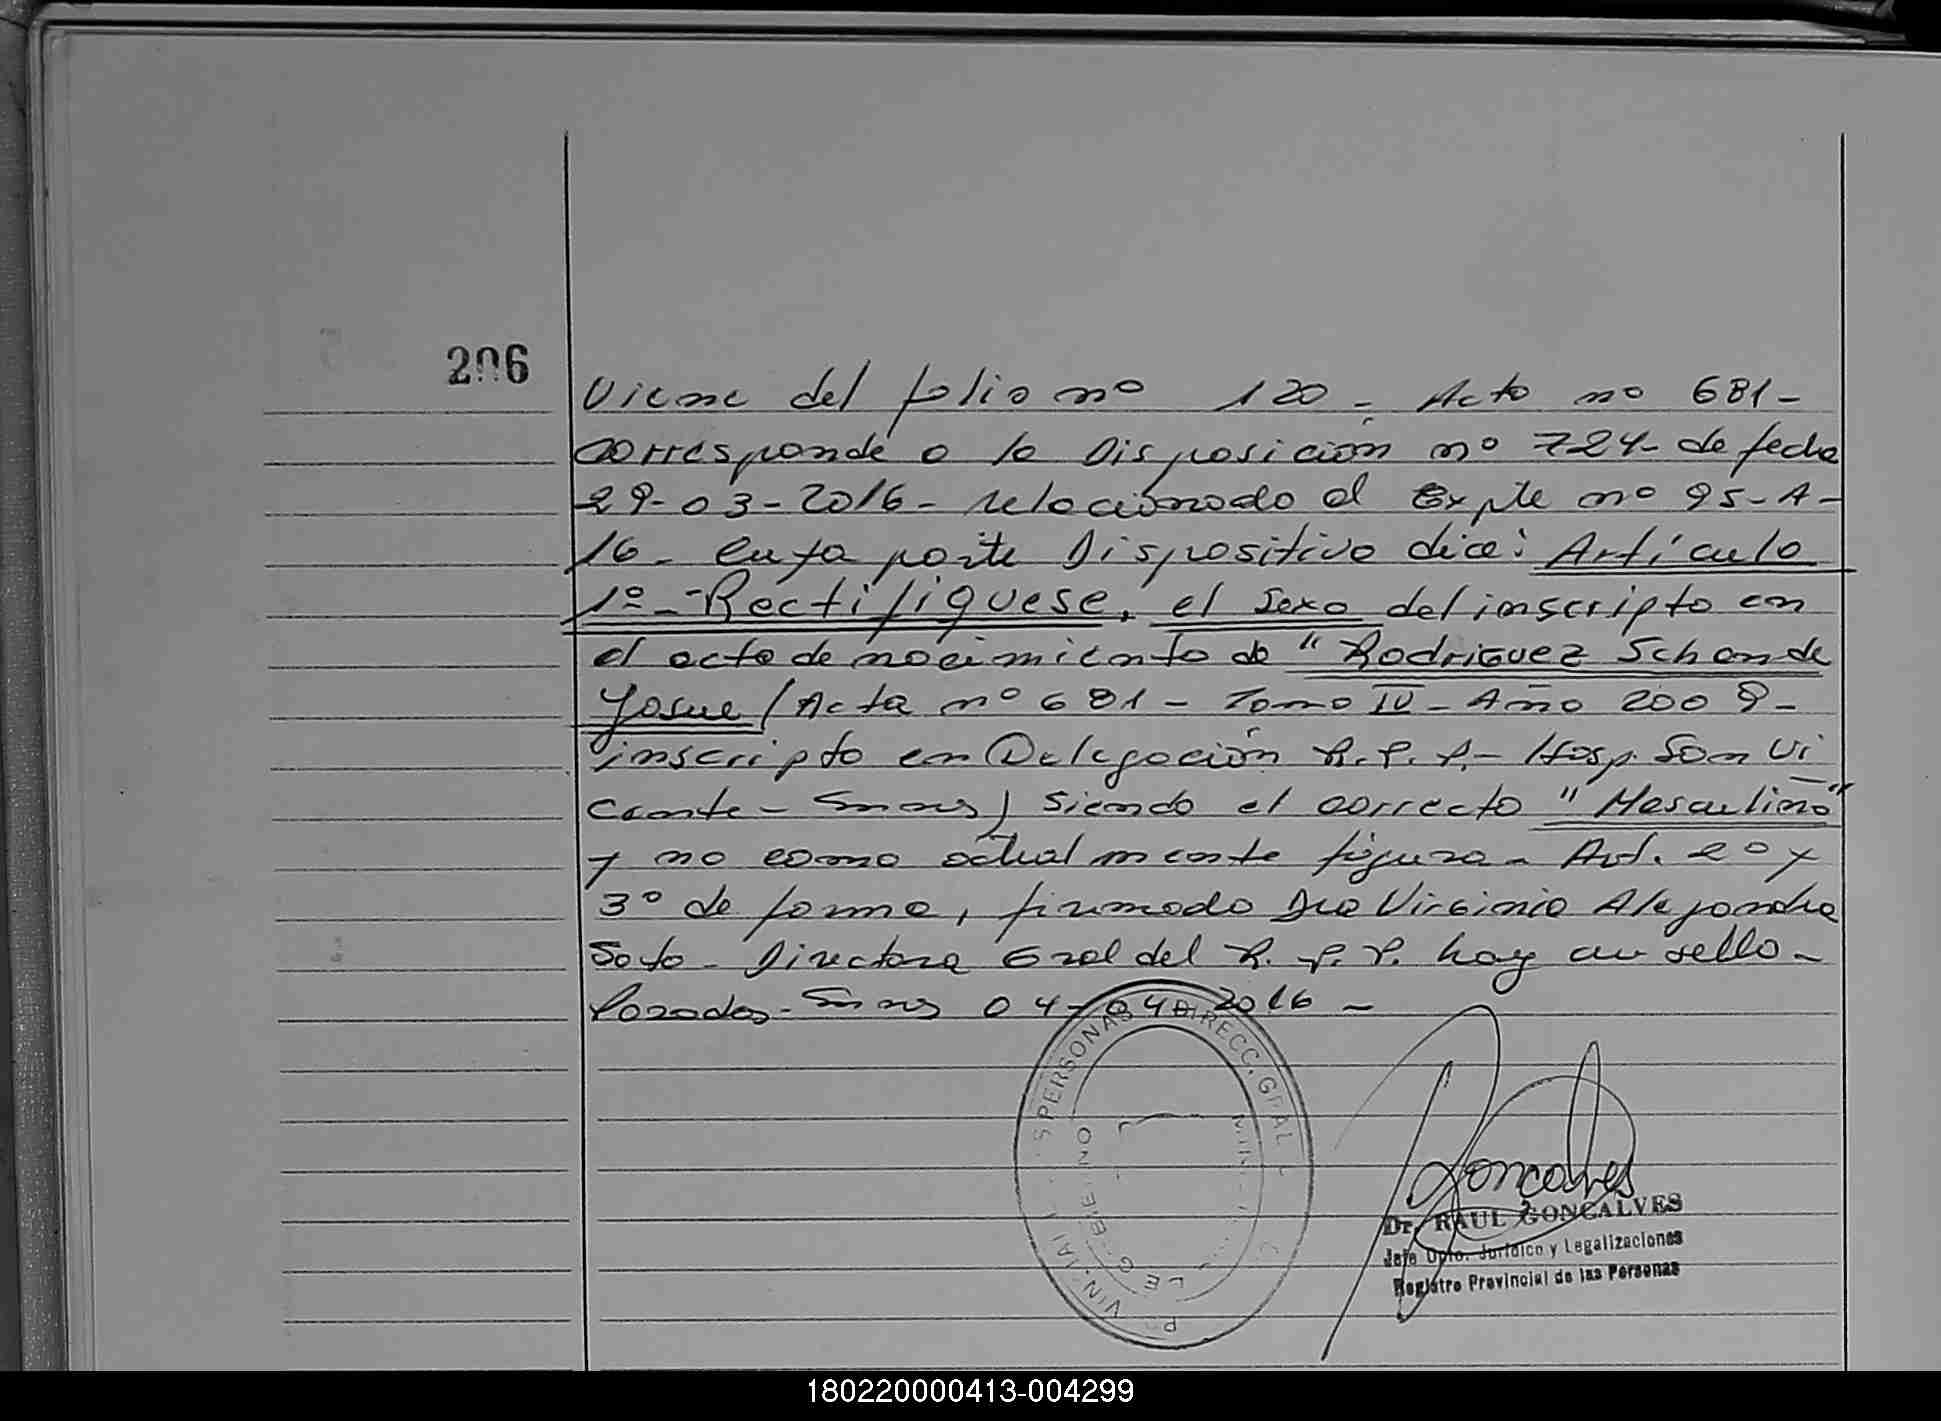 206
Viene del folio nº 120 - Acta nº 681 -
corresponde a la Disposición nº 724 - de fecha
29-03-2016 - relacionado al Expte nº 95-A-
16 - Cuya parte Dispositiva dice: Artículo
1º - Rectifíquese, el Sexo del inscripto en
el acta de nacimiento de "Rodriguez Schande
Josue / Acta nº 681 - Tomo IV - Año 2009 -
inscripto en Delegación R.P.P. - Hosp. San Vi
cente - ) siendo el correcto "Masculino"
y no como actualmente figura - Art. 2º y
3º de forma, firmado Dra Virginia Alejandra
Soto - Directora Gral del R.P.P. hay un sello -
Posadas - 04-04-2016 -
PERSONAS DIRECC. GRAL
Goncalves
Dr. RAUL GONCALVES
Jefe Dpto. Jurídico y Legalizaciones
Registro Provincial de las Personas
180220000413-004299